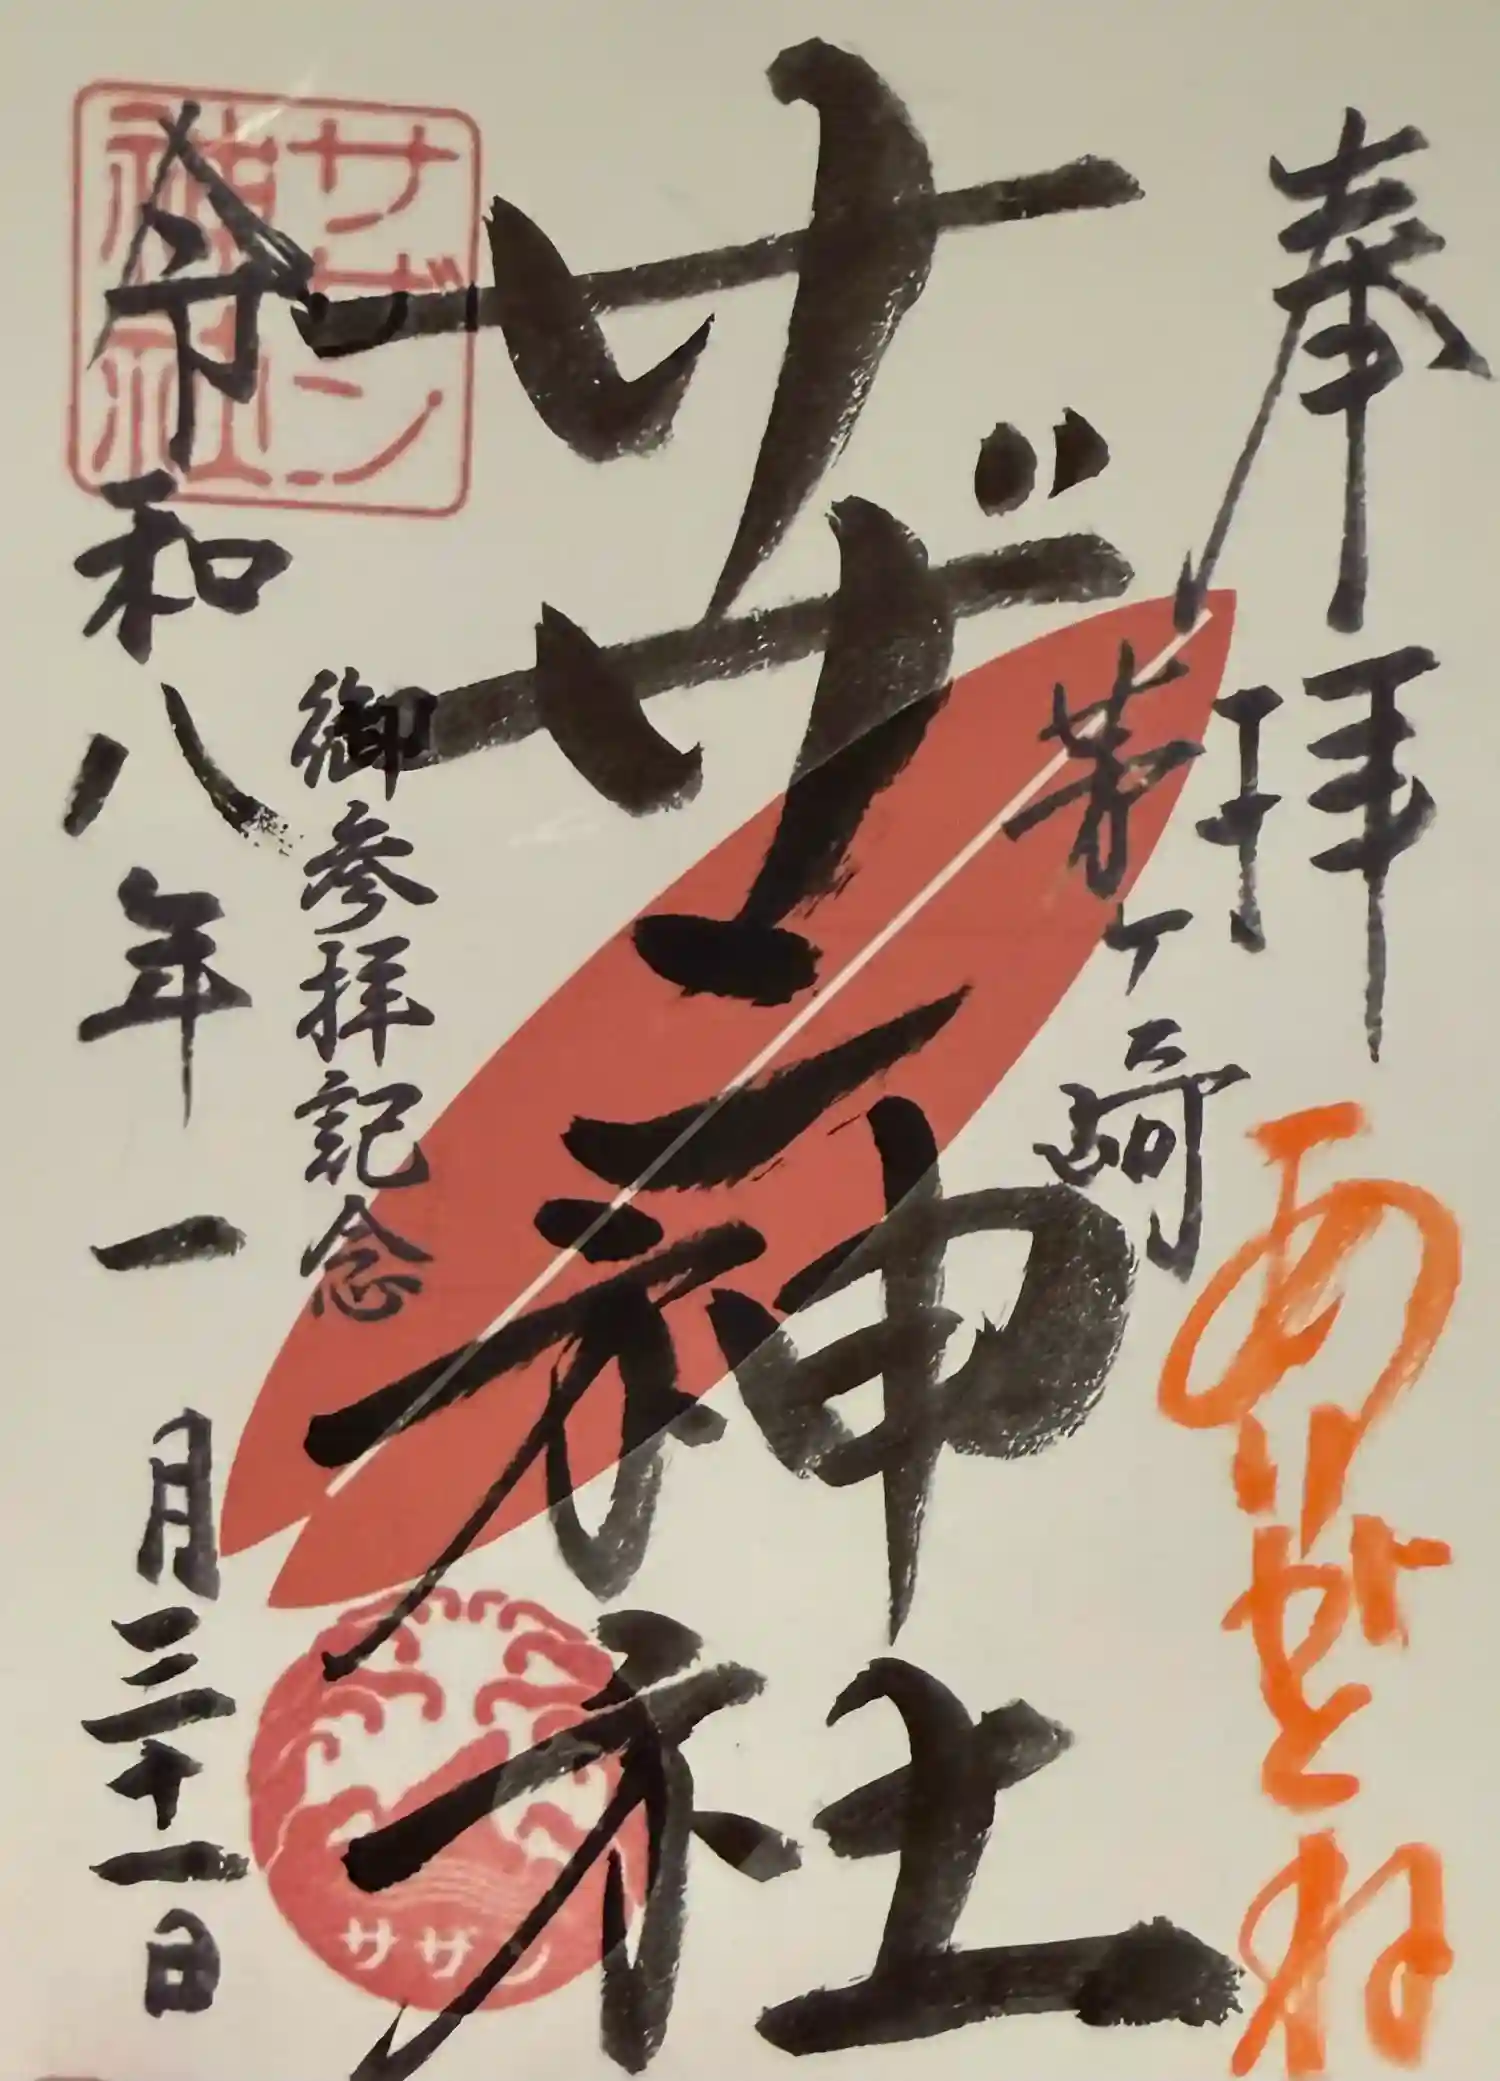 奉拝
茅ヶ崎
ありがとね
サザン神社
御参拝記念
令和八年一月三十一日
サザン
神社
サザン